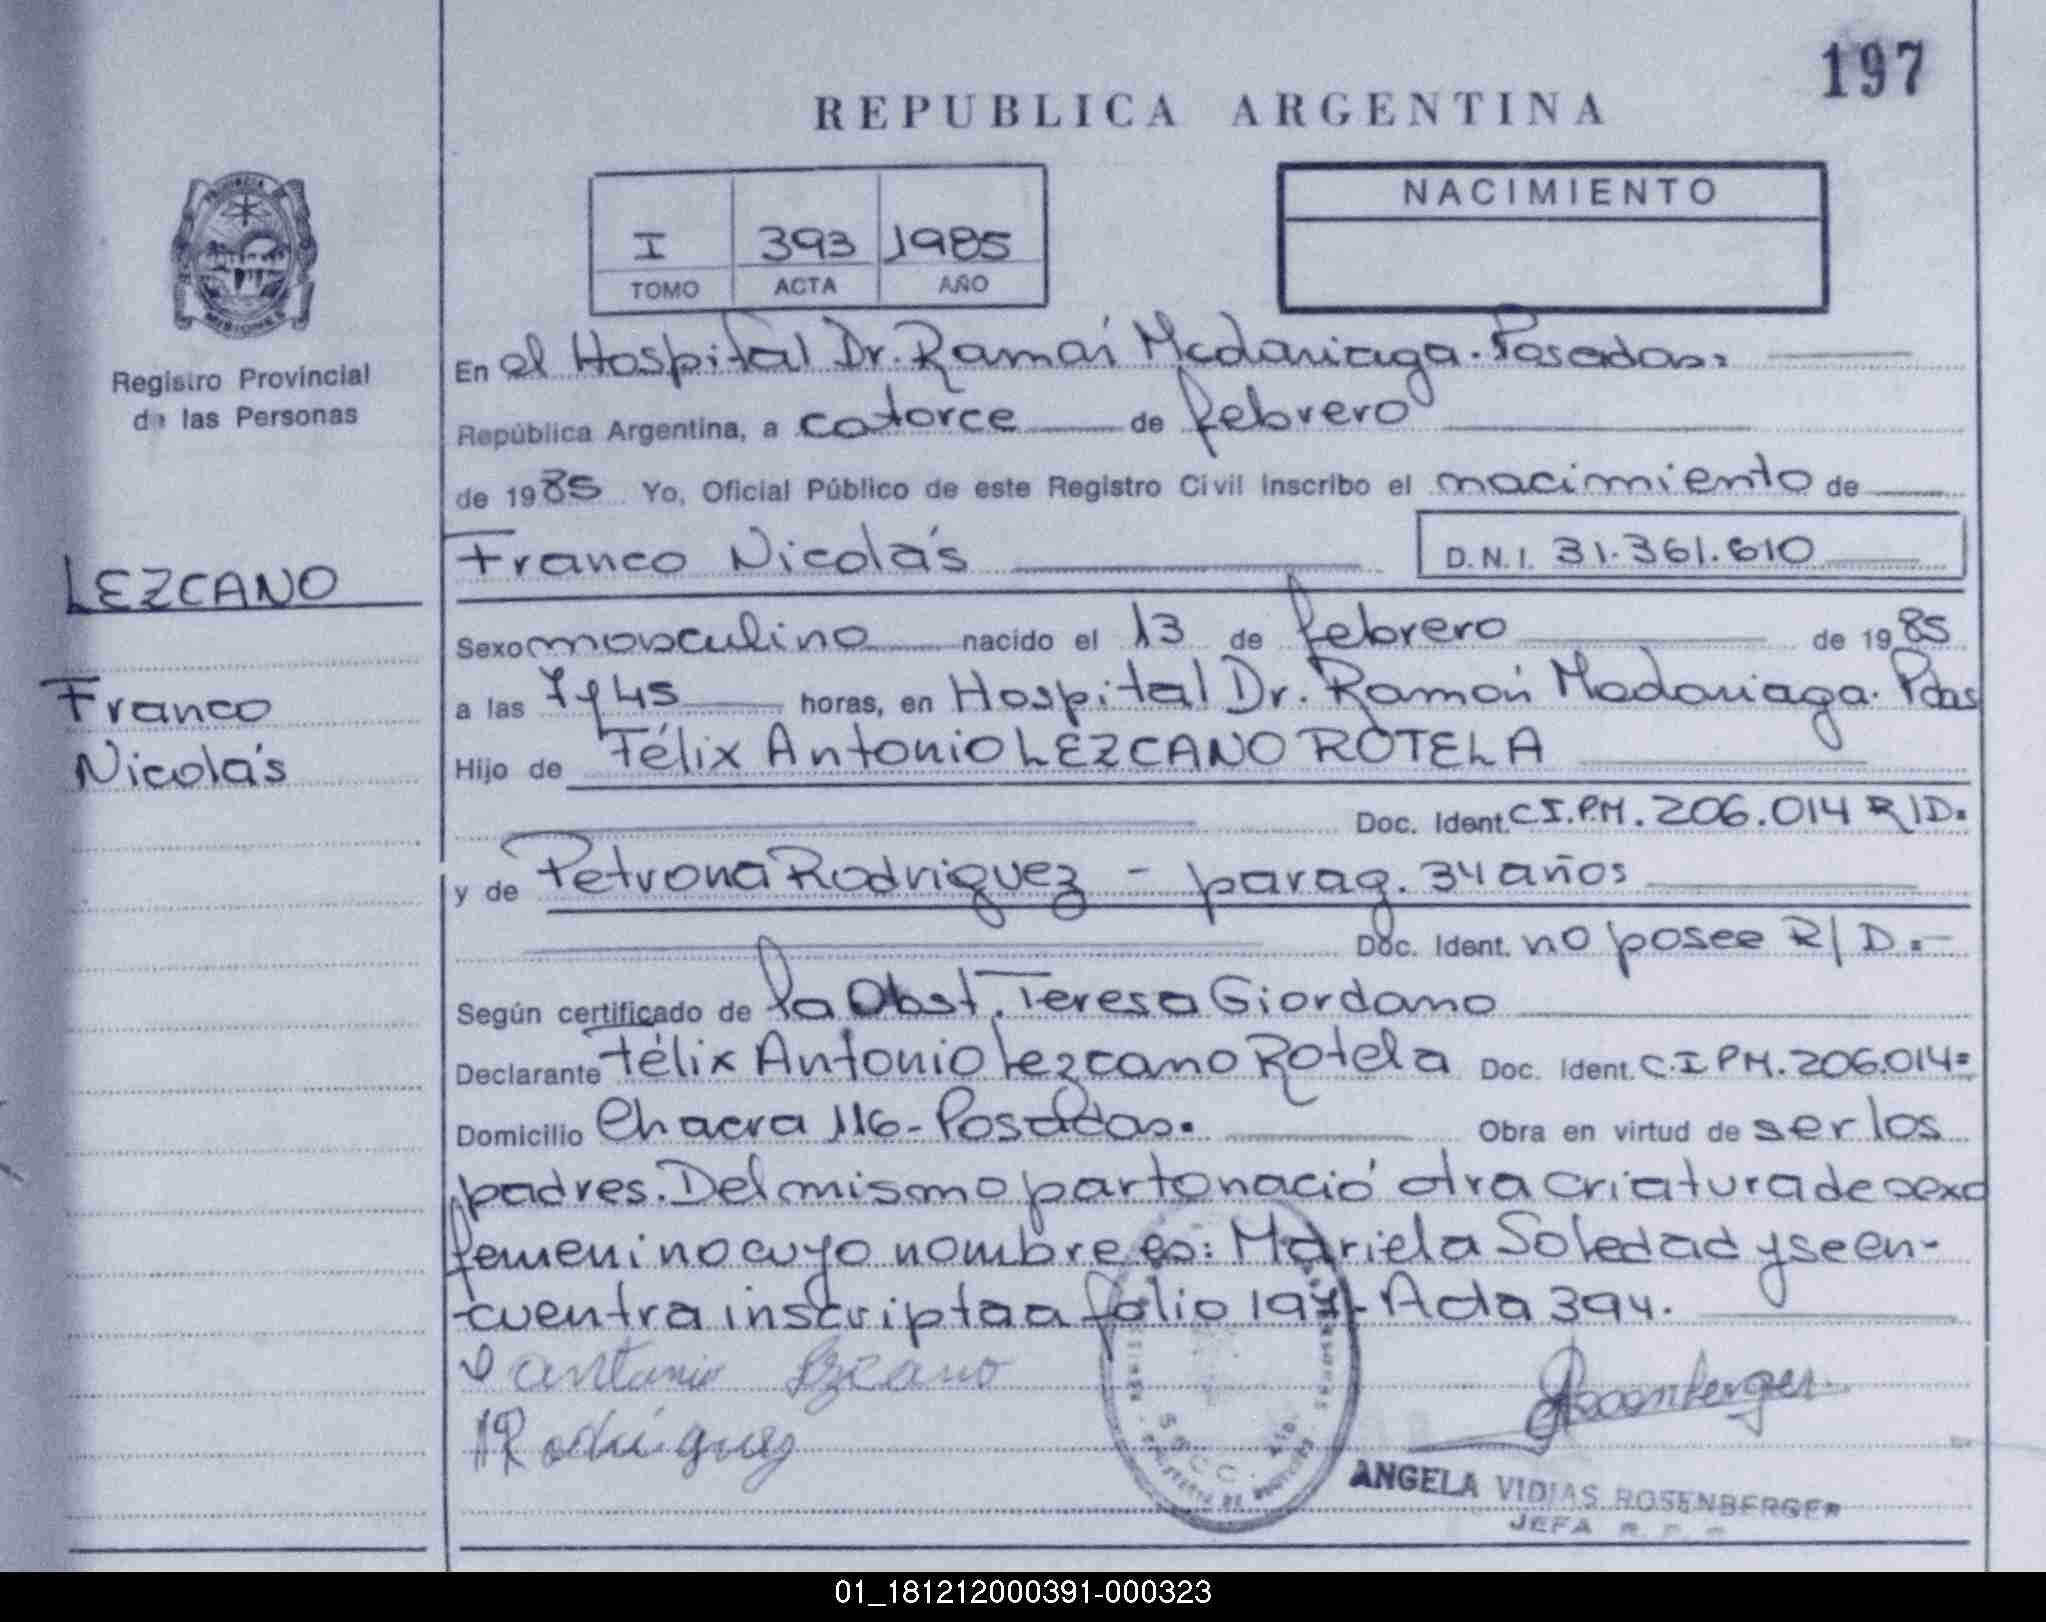 197
REPUBLICA ARGENTINA
I 393 1985
TOMO ACTA AÑO
NACIMIENTO
PROVINCIA DE MISIONES
Registro Provincial
de las Personas
En el Hospital Dr. Ramón Madariaga. Posadas.
República Argentina, a catorce de febrero
de 1985 Yo, Oficial Público de este Registro Civil inscribo el nacimiento de
Franco Nicolás D.N.I. 31.361.610
LEZCANO
Franco
Nicolás
Sexo masculino nacido el 13 de febrero de 1985
a las 7 y 45 horas, en Hospital Dr. Ramón Madariaga. Pdas
Hijo de Félix Antonio LEZCANO ROTELA
Doc. Ident. C.I.P.M. 206.014 R/D.
y de Petrona Rodriguez - parag. 34 años
Doc. Ident. no posee R/D.-
Según certificado de la Obst. Teresa Giordano
Declarante Félix Antonio Lezcano Rotela Doc. Ident. C.I.PM. 206.014=
Domicilio Chacra 116- Posadas. Obra en virtud de ser los
padres. Del mismo parto nació otra criatura de sexo
femenino cuyo nombre es: Mariela Soledad y se en-
cuentra inscripta a folio 197- Acta 394.
Antonio Lezcano
Rodriguez
Rosenberger
ANGELA VIDIAS ROSENBERGER
JEFA R. P.
01_181212000391-000323